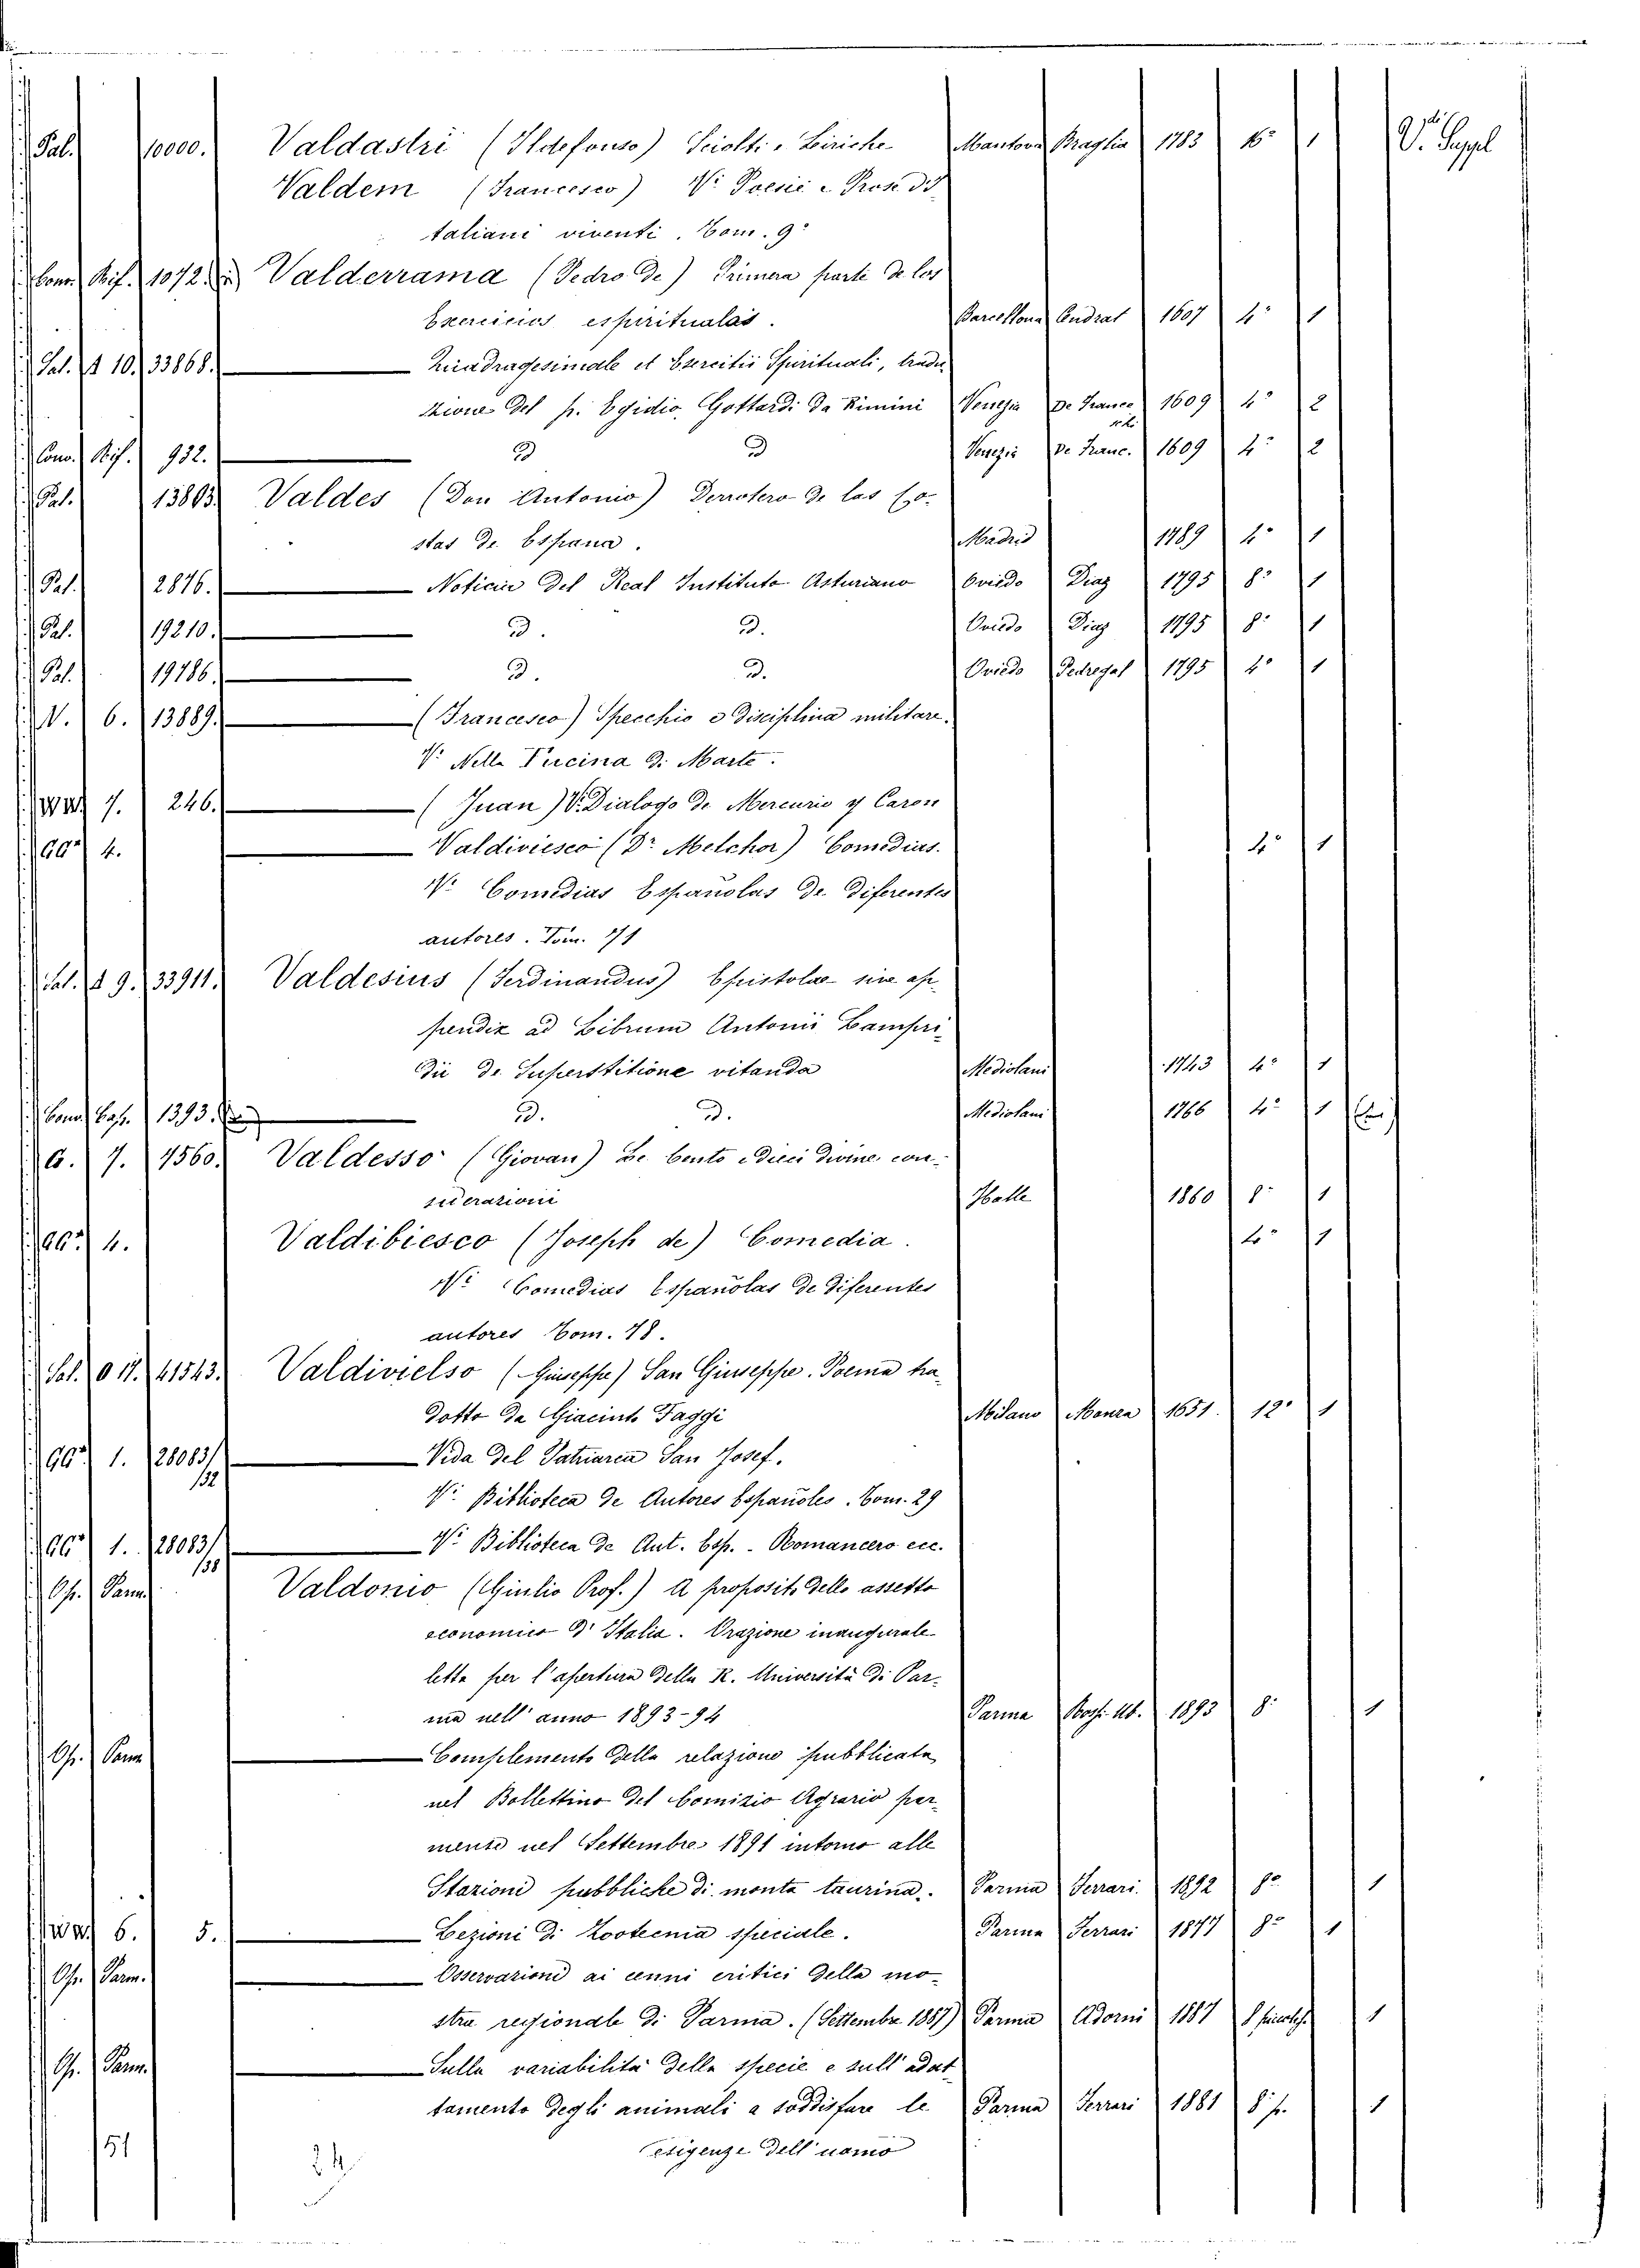 V. Suppl
Pal. 10000. Valdastri (Ildefonso) Sciolti e Liriche Mantova Braglia 1783 16° 1
Valdem (Francesco) V. Poesie e Prose d'I
taliani viventi. Tom. 9°
Conv. Rif. 1072. Valderrama (Pedro de) Primera parte de los
Exercicios espirituales. Barcellona Cendrat 1607 4° 1
Pal. 10. 33868. Quadragesimale et Esercitii Spirituali, tradu
zione del p. Egidio Gottardi da Rimini Venezia De Franceschi 1609 4° 2
Conv. Rif. 932. D D Venezia De Franc. 1609 4° 2
Pal. 13803. Valdes (Don Antonio) Derrotero de las Co-
stas de Espana. Madrid 1789 4° 1
Pal. 2876. Noticia del Real Instituto Asturiano Oviedo Diaz 1795 8° 1
Pal. 19210. D. D. Oviedo Diaz 1795 8° 1
Pal. 19786. D. D. Oviedo Pedregal 1795 4° 1
V. 6. 13889. (Francesco) Specchio e disciplina militare.
V. Nella Fucina di Marte.
7. 246. (Juan) V. Dialogo de Mercurio y Caron
4. Valdiviesco (Dr Melchor) Comedias. 4° 1
V. Comedias Espanolas de diferentes
autores. Tom. 71
Sal. 9. 33911. Valdesius (Ferdinandus) Epistolae sive ap
pendix ad Librum Antonii Lampri
dii de Superstitione vitanda Mediolani 1743 4° 1
Conv. Cap. 1393. D. D. Mediolani 1766 4° 1
G. 7. 7560. Valdesso (Giovan) Le Cento e dieci divine con-
siderazioni Halle 1860 8° 1
4. Valdibiesco (Joseph de) Comedia. 4° 1
V. Comedias Espanolas de diferentes
autores Tom. 78.
Sal. O 17. 41543. Valdivielso (Giuseppe) San Giuseppe. Poema tra
dotto da Giacinto Faggi Milano Monza 1651. 12° 1
1. 28083/132 Vida del Patriarca San Josef.
V. Biblioteca de Autores Espanoles. Tom. 29
1. 28083/138 V. Biblioteca de Aut. Esp. - Romancero ecc.
Op. Parm. Valdonio (Giulio Prof.) A proposito dello assetto
economico d'Italia. Orazione inaugurale
letta per l'apertura della R. Università di Par-
ma nell'anno 1893-94 Parma Rossi-Ub. 1893 8° 1
Op. Parm Complemento della relazione pubblicata
nel Bollettino del Comizio Agrario par
mense nel Settembre 1891 intorno alle
Stazioni pubbliche di monta taurina. Parma Ferrari. 1892 8° 1
6. 5. Lezioni di Zootecnia speciale. Parma Ferrari 1877 8° 1
Op. Parm. Osservazioni ai cenni critici della mo-
stra regionale di Parma. (Settembre 1887) Parma Adorni 1887 8 1
Op. Parm. Sulla variabilità della specie e sull'adat
tamento degli animali a soddisfare le Parma Ferrari 1881 8° p. 1
esigenze dell'uomo
51
24